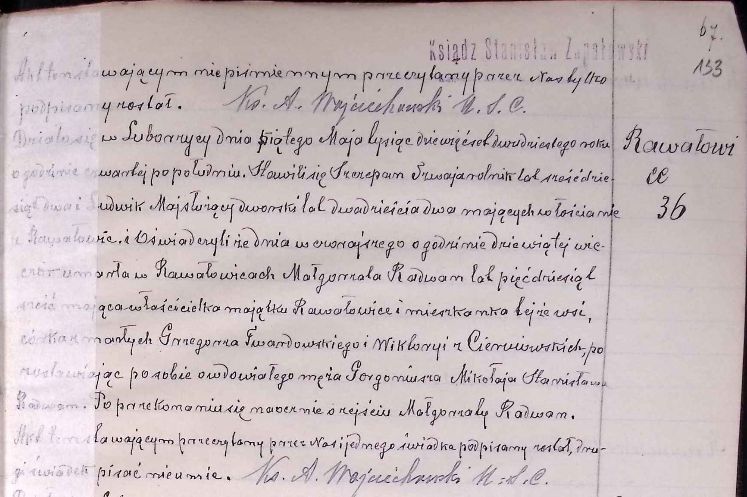 67.
Ksiądz Stanisław Zapałowski
153
Akt ten stawającym niepiśmiennym przeczytany przez Nas tylko
podpisany został. Ks. A. Wojciechowski U. S. C.
Działo się w Luborzycy dnia piątego Maja tysiąc dziewięćset dwudziestego roku
o godzinie czwartej po południu. Stawili się Szczepan Szwaja rolnik lat sześćdzie-
siąt dwa i Ludwik Maj służący dworski lat dwadzieścia dwa mających włościanie
z Rawałowic. i Oświadczyli że dnia wczorajszego o godzinie dziewiątej wie-
czór umarła w Rawałowicach Małgorzata Radwan lat pięćdziesiąt
sześć mająca właścicielka majątku Rawałowice i mieszkanka tejże wsi,
córka zmarłych Grzegorza Twardowskiego i Wiktoryi z Cierniowskich, po
zostawiając po sobie owdowiałego męża Gorgoniusza Mikołaja Stanisława
Radwan. Po przekonaniu się naocznie o zejściu Małgorzaty Radwan.
Akt ten stawającym przeczytany przez Nas i jednego świadka podpisany został, dru-
gi świadek pisać nie umie. Ks. A. Wojciechowski U. S. C.
Rawałowi
ce
36